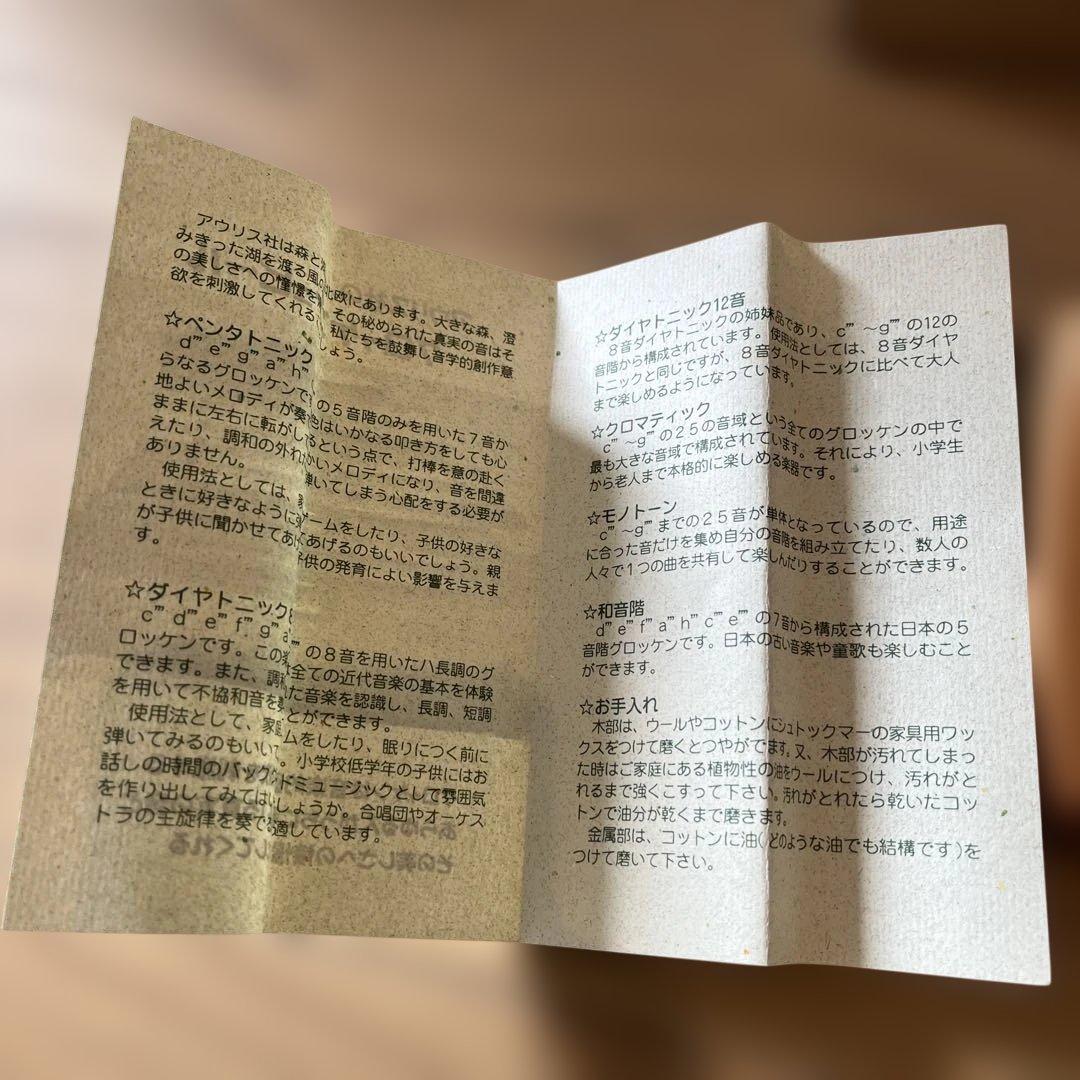 アウリス社は森と 北欧にあります。大きな森、澄
みきった湖を渡る風 その秘められた真実の音はそ
の美しさへの憧憬を 私たちを鼓舞し音学的創作意
欲を刺激してくれる しょう。
☆ペンタトニック
d''' e''' g''' a''' h''' の5音階のみを用いた7音か
らなるグロッケンで 色はいかなる叩き方をしても心
地よいメロディが奏 るという点で、打棒を意の赴く
ままに左右に転がし かいメロディになり、音を間違
えたり、調和の外れ 弾いてしまう心配をする必要が
ありません。
使用法としては、 ゲームをしたり、子供の好きな
ときに好きなように てあげるのもいいでしょう。親
が子供に聞かせてあ 子供の発育によい影響を与えま
す。
☆ダイヤトニック
c''' d''' e''' f''' g''' a''' の8音を用いたハ長調のグ
ロッケンです。この 全ての近代音楽の基本を体験
できます。また、調 た音楽を認識し、長調、短調
を用いて不協和音を とができます。
使用法として、家 ムをしたり、眠りにつく前に
弾いてみるのもいい 。小学校低学年の子供にはお
話しの時間のバック ドミュージックとして雰囲気
を作り出してみては しょうか。合唱団やオーケス
トラの主旋律を奏で 適しています。
☆ダイヤトニック12音
8音ダイヤトニックの姉妹品であり、c''' ～g'''' の12の
音階から構成されています。使用法としては、8音ダイヤ
トニックと同じですが、8音ダイヤトニックに比べて大人
まで楽しめるようになっています。
☆クロマティック
c''' ～g'''' の25の音域という全てのグロッケンの中で
最も大きな音域で構成されています。それにより、小学生
から老人まで本格的に楽しめる楽器です。
☆モノトーン
c''' ～g'''' までの25音が単体となっているので、用途
に合った音だけを集め自分の音階を組み立てたり、数人の
人々で1つの曲を共有して楽しんだりすることができます。
☆和音階
d''' e''' f''' a''' h''' c'''' e'''' の7音から構成された日本の5
音階グロッケンです。日本の古い音楽や童歌も楽しむこと
ができます。
☆お手入れ
木部は、ウールやコットンにシュトックマーの家具用ワッ
クスをつけて磨くとつやがでます。又、木部が汚れてしまっ
た時はご家庭にある植物性の油をウールにつけ、汚れがと
れるまで強くこすって下さい。汚れがとれたら乾いたコッ
トンで油分が乾くまで磨きます。
金属部は、コットンに油(どのような油でも結構です)を
つけて磨いて下さい。